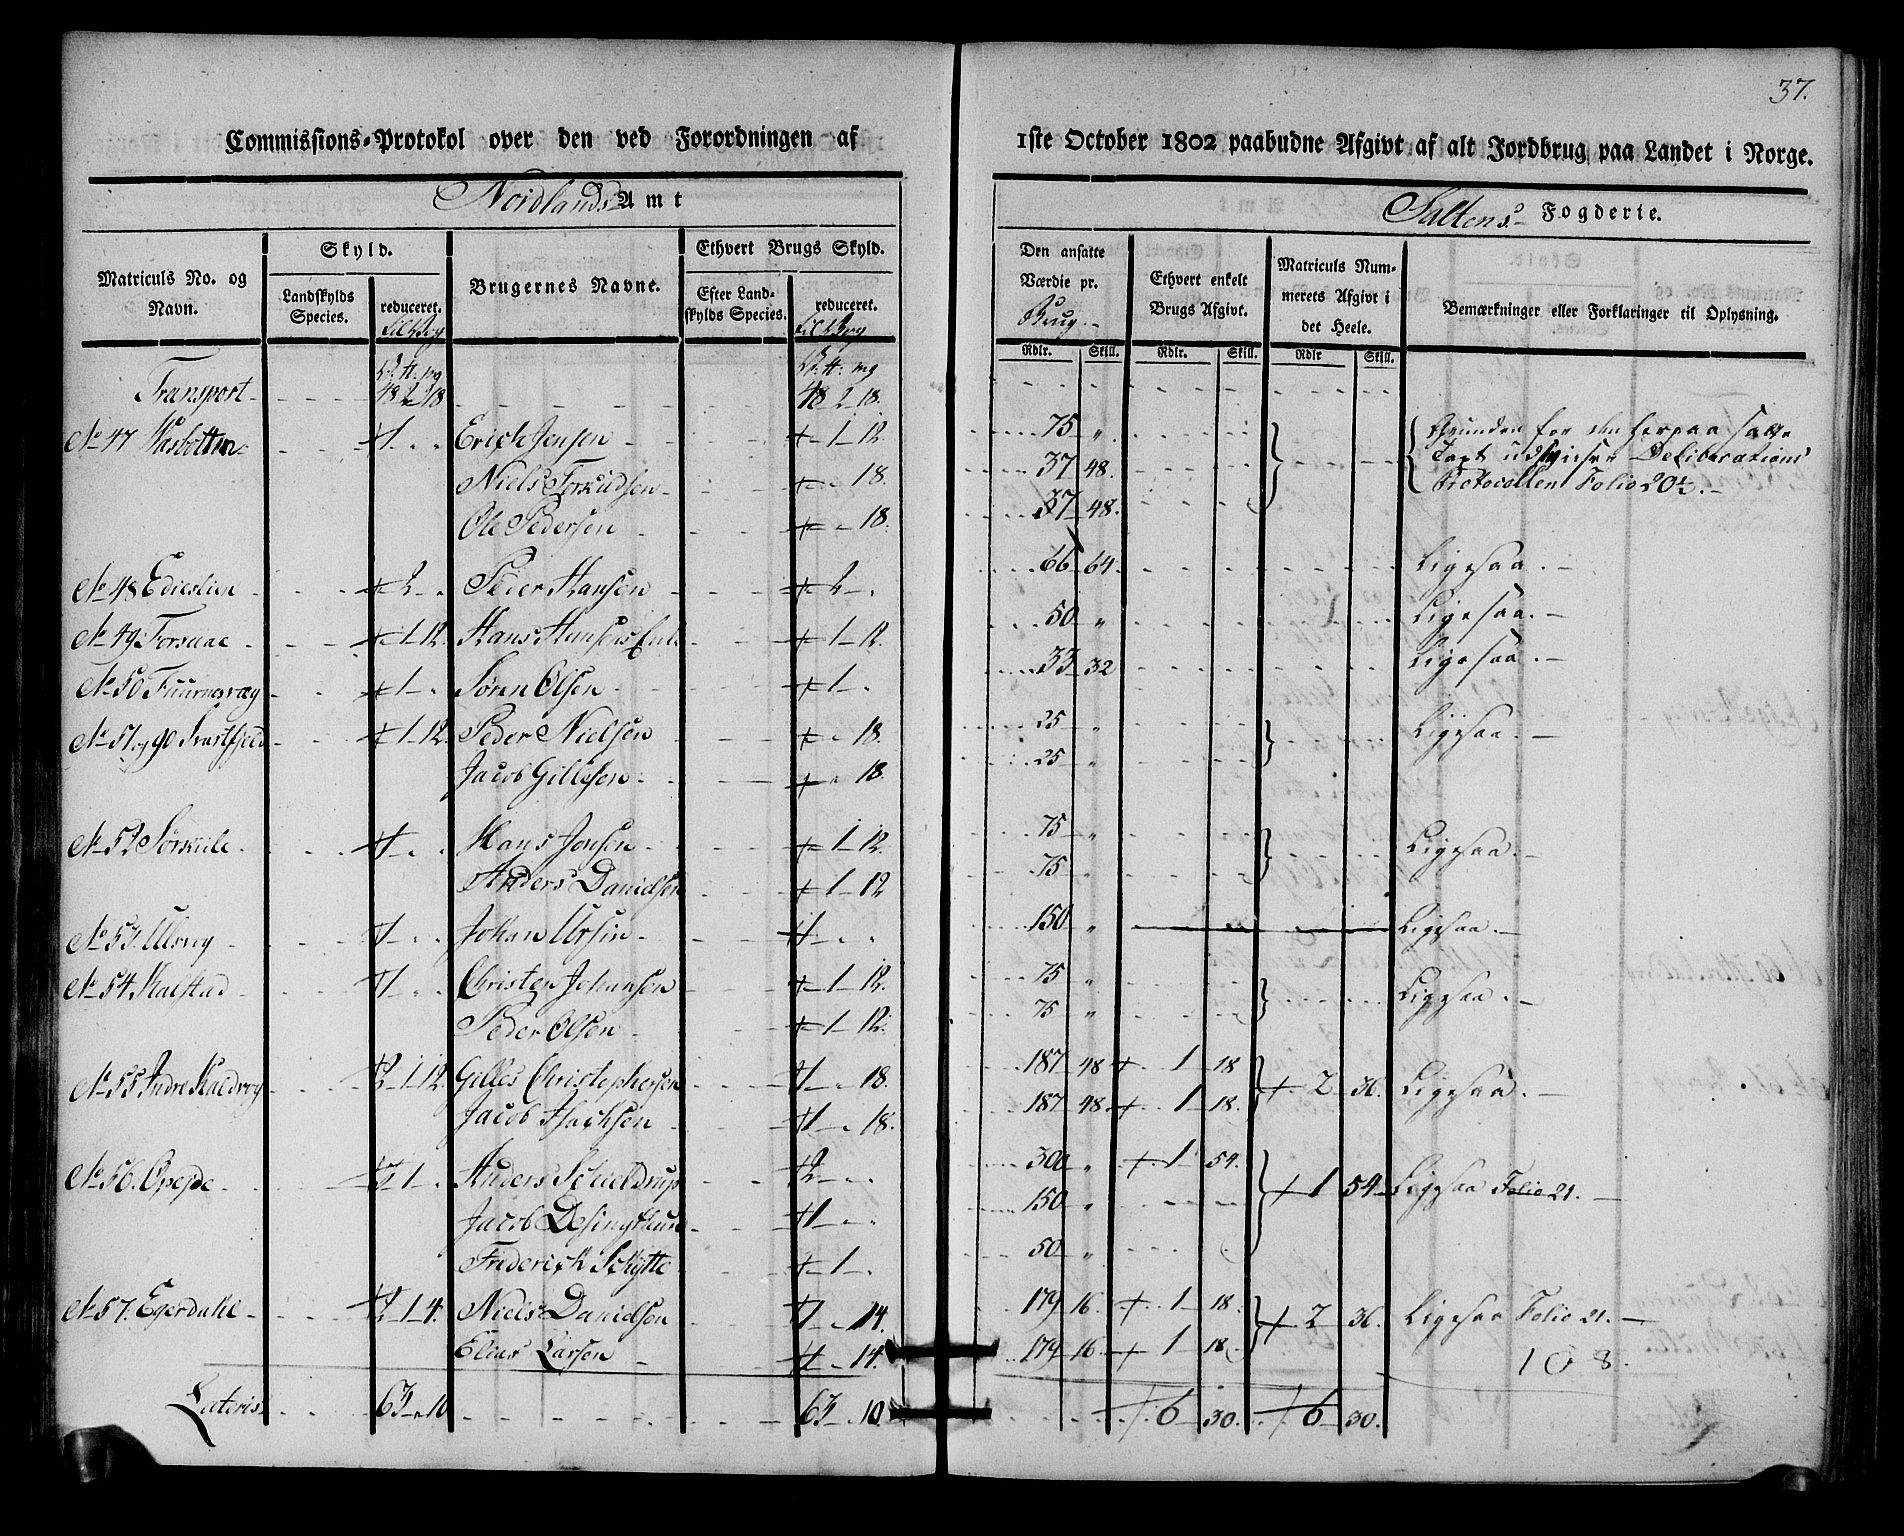 37.
Commissions-Protokol over den ved Forordningen af 1ste October 1802 paabudne Afgivt af alt Jordbrug paa Landet i Norge.
Nordlands Amt
Saltens Fogderie.
Matriculs No. og Navn.
Skyld.
Landskylds Species.
reduceret.
Brugernes Navne.
Ethvert Brugs Skyld.
Efter Landskylds Species.
reduceret.
Den ansatte Værdie pr. Brug.
Ethvert enkelt Brugs Afgivt.
Matriculs Nummerets Afgivt i det Heele.
Bemærkninger eller Forklaringer til Oplysning.
Rdlr. Skill. Rdlr. Skill. Rdlr Skill.
Transport 48 2 18 48 2 18.
No 47 1 Erich Jensen 1 12. 75 Grunden for den herpaa satte
Niels 18. 37 48. Taxt udviiser Deliberations
Ole Pedersen 18. 37 48. Protocollen Folio 20½.
No 48 2 Peder Hansen 2 66 64 Ligesaa.
No 49 Forsaae 1 12. Hans Hansens Enke 1 12. 50 Ligesaa.
No 50 1 Søren Olsen 1 33 32 Ligesaa.
No 51 og 1 12. Peder Nielsen 18. 25 Ligesaa.
Jacob Gillesen 18. 25
No 52 1 Hans Jensen 1 12. 75 Ligesaa.
Anders Danielsen 1 12 75
No 53. 1 Johan Ursin 1 150 Ligesaa.
No 54. 1 Christen Johansen 1 12. 75 Ligesaa.
Peder Olsen 1 12. 75
No 55 Indre 2 1 12. Gilles Christophersen 1 18. 187 48 1 18 2 36. Ligesaa.
Jacob 1 18. 187 48. 1 18.
No 56. 3 1 Anders Schieldrup 2 300 1 54. 1 54 Ligesaa Folio 21.
Jacob 1 150
Frederich Schytte 1 50
No 57. Egerdahl 2 1 4. Niels Danielsen 1 14. 179 16. 1 18. 2 36. Ligesaa Folio 21.
Elias Larsen 1 14. 179 16. 1 18
108.
Lateris 63 10 63 10. 6 30. 6 30.